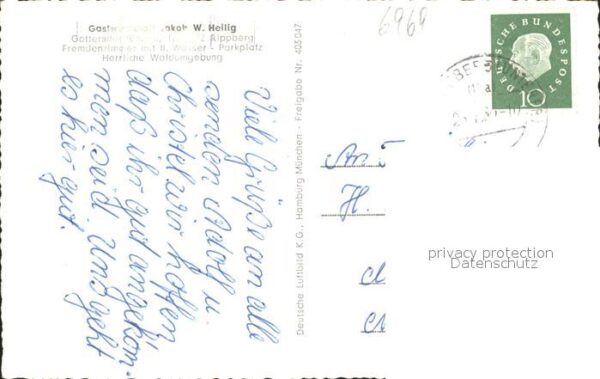 Gasthaus Jakob W. Heilig
Rippberg
Fremdenzimmer mit fl. Wasser - Parkplatz
Herrliche Waldumgebung
6969
DEUTSCHE BUNDESPOST
10
Viele Grüße an alle
senden Adolf u.
Christel wir hoffen
daß ihr gut angekom-
men seid. Und geht
es hier gut.
Deutsche Luftbild K.G., Hamburg München - Freigabe Nr. 405047
An
H.
privacy protection
Datenschutz